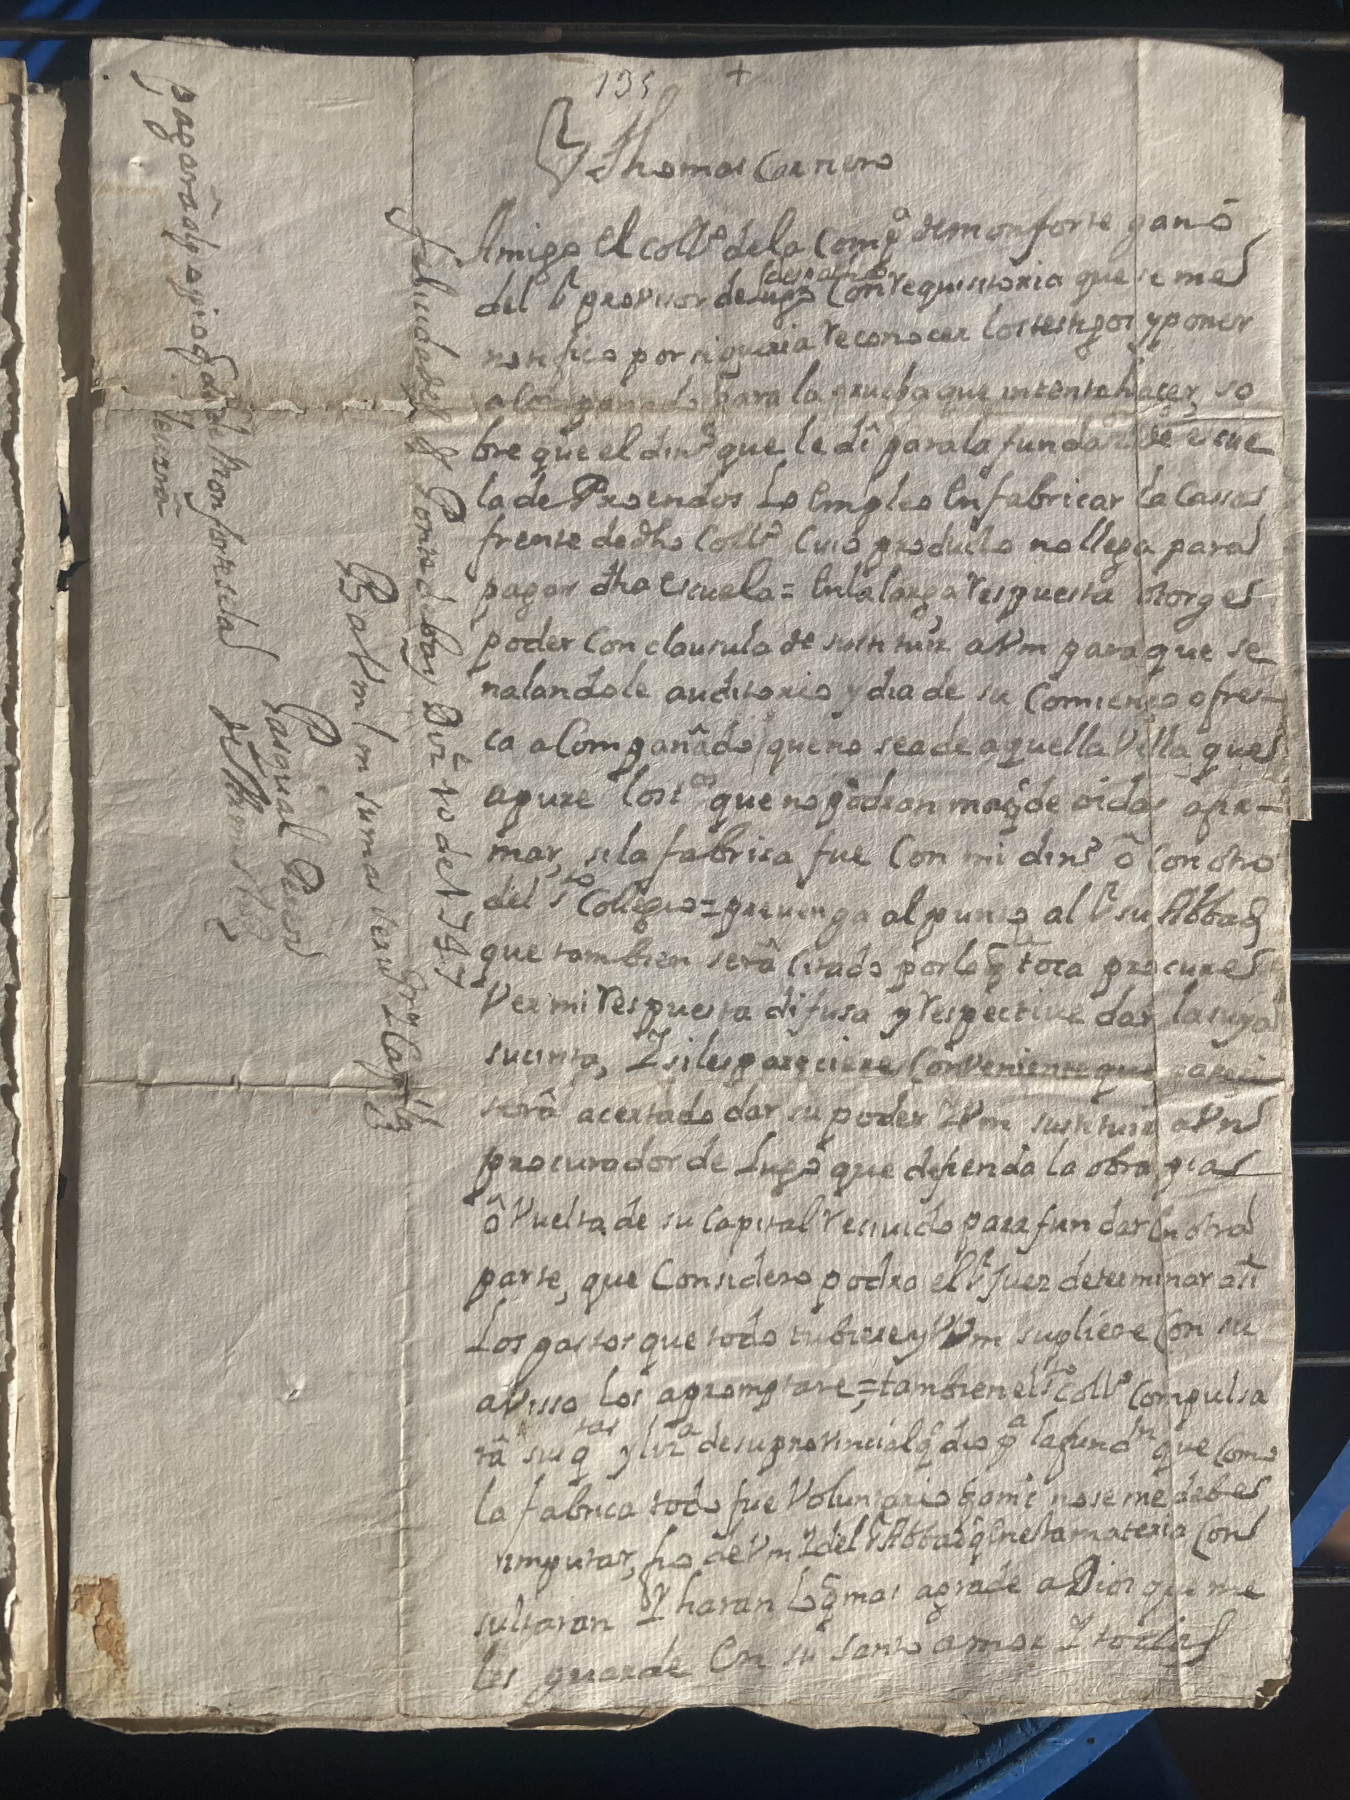 135 +
Sr Thomas Carnero
Amigo el collº dela Compª de monforte ganó
del Sr provisor de lugo despacho Con requisitoria que se me
notifico por si queria reconocer los testigos y poner
acompañado para la prueba que intenta haçer, so
bre que el dinº que le dî para la fundaon de escue
la de Proendos lo Empleo En fabricar la Cassa
frente de dho Collº Cuio producto no llega para
pagar dha escuela = En la larga respuesta otorge
poder Con clausula de sustituir a Vm para que se
nalandole auditorio y dia de su Comienço ofrez-
ca aCompañado que no sea de aquella Villa que
apure los tos que no podran mas q de oidas afir-
mar, si la fabrica fue Con mi dinº ô Con otro
del sto Collegio = prevenga al punto al Sr su Abbad
que tambien serâ citado por lo q le toca procure
Ver mi respuesta difusa y respective dar la suya
sucinta, Y si les pareciere Conveniente que
serâ acertado dar su poder Y Vm sustituir a Vn
procurador de Lugo que defienda la obra pia
ô Vuelta de su Capital reciuido para fundar En otra
parte, que Considero podra el Sr Juez determinar asi
Los gastos que todo tubiere y Vm supliere Con su
avisso los aprompt­are = tambien el sto collº Compulsa
râ sus qtas y lizª de su provincial q dio pª la fundon que Como
la fabrica todo fue Voluntario q a mi no se me debe
imputar, fio de Vm Y del Sr Abbad q En esta materia Con
sultaran Y haran lo q mas agrade a Dios que me
los guarde En su santo amor Y todas
felicidades Pontedebay Dizre 10 de 1747
B L m l m su mas
Pasqual Perez
pagarâ el propio q dn de Monforte se la
llevarâ